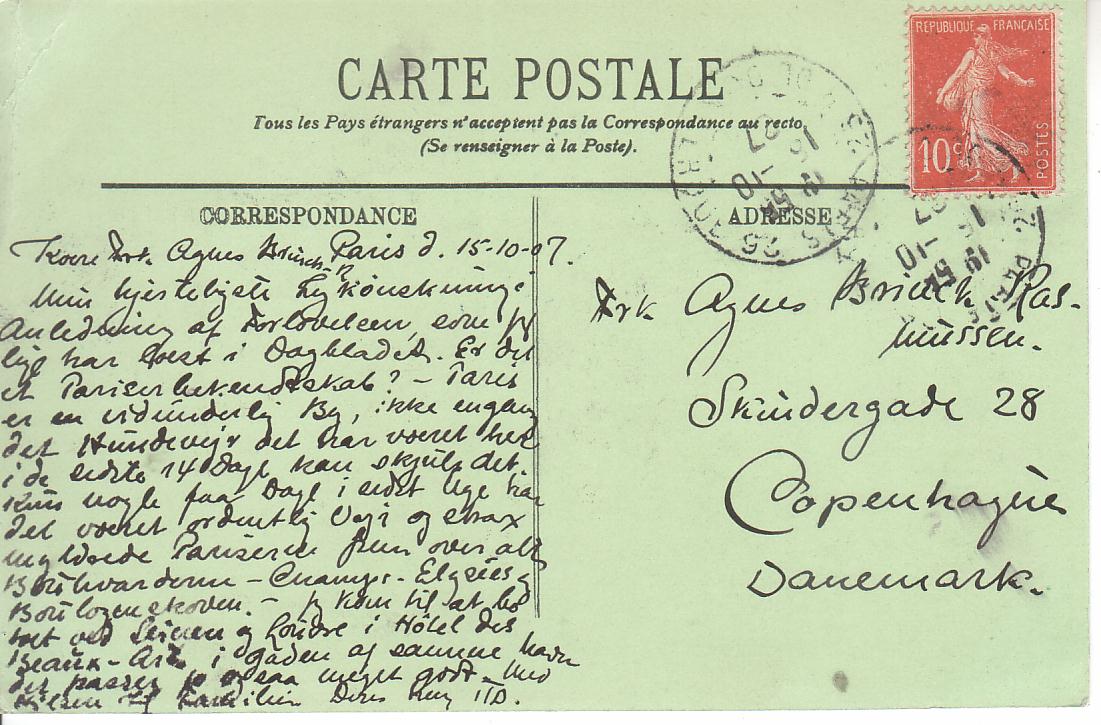 CARTE POSTALE
Tous les Pays étrangers n'acceptent pas la Correspondance au recto
(Se renseigner à la Poste).
REPUBLIQUE FRANÇAISE
10c
POSTES
CORRESPONDANCE
ADRESSE
Kære Frk. Agnes Brinch Paris d. 15-10-07.
Min hjerteligste Lykønskning i
Anledning af Forlovelsen, som jeg
lige har læst i Dagbladet. Er det
et Pariserbekendtskab? – Paris
er en vidunderlig By, ikke engang
det Hundevejr det har været her
i de sidste 14 Dage kan skjule det.
Kun nogle faa Dage i sidst Uge har
det været ordentlig Vejr og strax
myldrede Pariserne frem over alt
Boulevarderne – Champs-Elysées og
Boulogneskoven. – Jeg kom til at bo
tæt ved Seinen og Louvre i Hôtel des
Beaux-Arts i Gaden af samme Navn
det passer jo ogsaa meget godt. Med
Hilsen til Familien Deres
Frk Agnes Brinck Ras-
mussen.
Skindergade 28
Copenhague
Danemark.